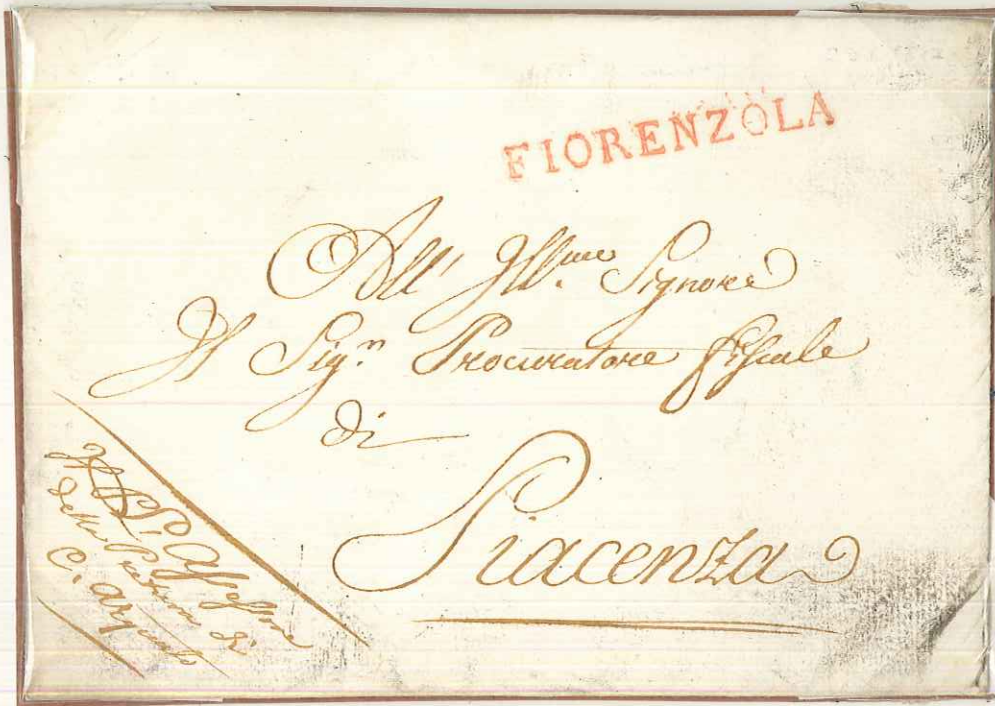 FIORENZOLA
All' Ill.me Signore
Il Sig.n Procuratore fiscale
di
Piacenza
Assessore
della Pretura di
C. Arquato